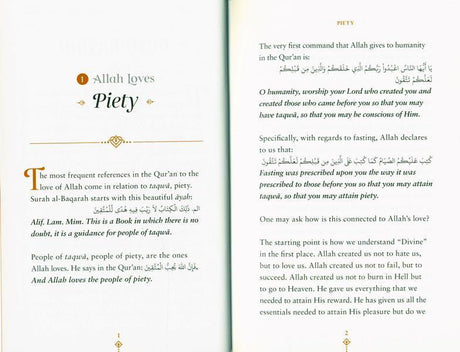 1 Allah Loves
Piety
The most frequent references in the Qur'an to the
love of Allah come in relation to taquā, piety.
Surah al-Baqarah starts with this beautiful āyah:
الم، ذَلِكَ الْكِتَابُ لَا رَيْبَ فِيهِ هُدًى لِّلْمُتَّقِينَ
Alif. Lam. Mim. This is a Book in which there is no
doubt, it is a guidance for people of taquā.
People of taquā, people of piety, are the ones
Allah loves. He says in the Qur'an: فَإِنَّ اللَّهَ يُحِبُّ الْمُتَّقِينَ.
And Allah loves the people of piety.
1
PIETY
The very first command that Allah gives to humanity
in the Qur'an is:
يَا أَيُّهَا النَّاسُ اعْبُدُوا رَبَّكُمُ الَّذِي خَلَقَكُمْ وَالَّذِينَ مِن قَبْلِكُمْ
لَعَلَّكُمْ تَتَّقُونَ
O humanity, worship your Lord who created you and
created those who came before you so that you may
have taquā, so that you may be conscious of Him.
Specifically, with regards to fasting, Allah declares
to us that:
كُتِبَ عَلَيْكُمُ الصِّيَامُ كَمَا كُتِبَ عَلَى الَّذِينَ مِن قَبْلِكُمْ لَعَلَّكُمْ تَتَّقُونَ
Fasting was prescribed upon you the way it was
prescribed to those before you so that you may attain
taquā, so that you may attain piety.
One may ask how is this connected to Allah's love?
The starting point is how we understand "Divine"
in the first place. Allah created us not to hate us,
but to love us. Allah created us not to fail, but to
succeed. Allah created us not to burn in Hell but
to go to Heaven. He gave us everything that we
needed to attain His reward. He has given us all the
essentials needed to attain His pleasure but do we
2